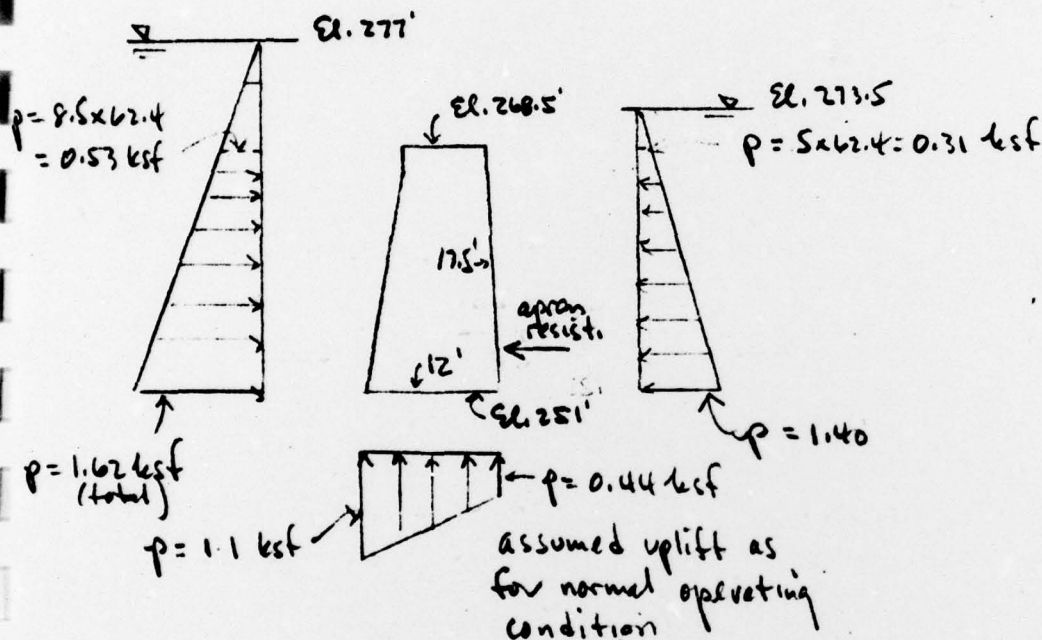 El. 277'
p = 8.5x62.4
= 0.53 ksf
El. 268.5'
El. 273.5
p = 5x62.4 = 0.31 ksf
17.5'
apron
resist.
12'
El. 251'
p = 1.62 ksf
(total)
p = 1.40
p = 0.44 ksf
p = 1.1 ksf
assumed uplift as
for normal operating
condition